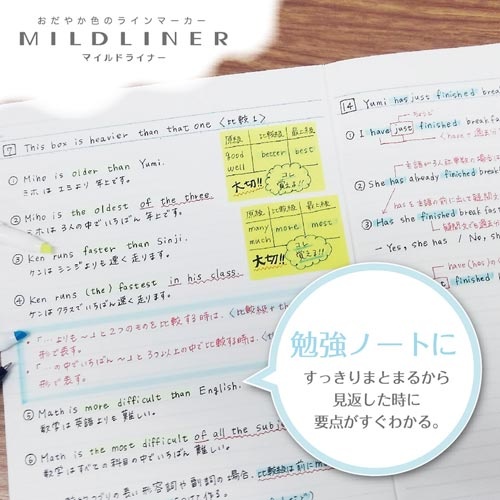 おだやか色のラインマーカー
MILDLINER
マイルドライナー
7 This box is heavier than that one 〈比較1〉
① Miho is older than Yumi.
ミホは ユミより 年上です。
② Miho is the oldest of the three.
ミホは 3人の中でいちばん 年上です。
③ Ken runs faster than Sinji.
ケンは シンジよりも 速く 走ります。
④ Ken runs (the) fastest in his class.
ケンは クラスで いちばん 速く 走ります。
・「…よりも〜」と2つのものを比較する時は、〈比較級+th
形で表す。
・「…の中でいちばん〜」と3つ以上の中で比較する時は、〈th
形で表す。
⑤ Math is more difficult than English.
数学は 英語よりも 難しい。
⑥ Math is the most difficult of all the subje
数学は すべての 科目の中で いちばん 難しい。
の長い形容詞や副詞の場合、比較級は前にm
原級 比較級 最上級
good better best
well
大切!! コレ
覚えよ!!
原級 比較級 最上級
many more most
much
大切!! コレ
覚えよ!!
14 Yumi has just finished breakf
① I have just finished breakf
② She has already finished break
③ Has she finished breakfa
- Yes, she has / No, sh
have(has)の
finished br
勉強ノートに
すっきりまとまるから
見返した時に
要点がすぐわかる。